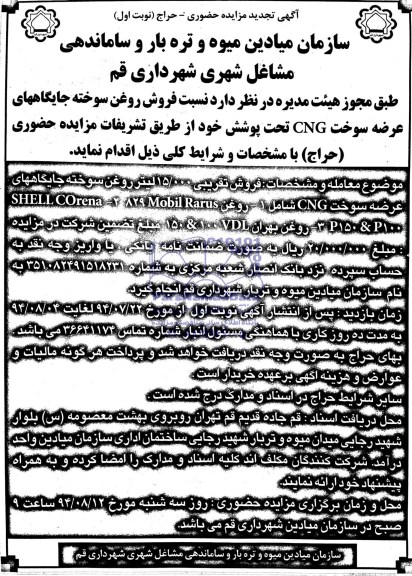 آگهی تجدید مزایده حضوری - حراج (نوبت اول)
سازمان میادین میوه و تره بار و ساماندهی
مشاغل شهری شهرداری قم
طبق مجوز هیئت مدیره در نظر دارد نسبت فروش روغن سوخته جایگاههای
عرضه سوخت CNG تحت پوشش خود از طریق تشریفات مزایده حضوری
(حراج) با مشخصات و شرایط کلی ذیل اقدام نماید.
موضوع معامله و مشخصات: فروش تقریبی ۱۵/۰۰۰ لیتر روغن سوخته جایگاههای
عرضه سوخت CNG شامل ۱- روغن Mobil Rarus ۸۲۹ ۲- SHELL COrena
P۱۵۰ & P۱۰۰ ۳- روغن بهران VDL ۱۰۰ & ۱۵۰ مبلغ تضمین شرکت در مزایده
: مبلغ ۲۰/۰۰۰/۰۰۰ ریال به صورت ضمانت نامه بانکی، یا واریز وجه نقد به
حساب سپرده نزد بانک انصار شعبه مرکزی به شماره به
نام سازمان میادین میوه و تربار شهرداری قم انجام گیرد.
زمان بازدید: پس از انتشار آگهی نوبت اول از مورخ ۹۳/۰۷/۲۲ لغایت ۹۳/۰۸/۰۳
به مدت ده روز کاری با هماهنگی مسئول انبار شماره تماس ۳۶۶۴۱۱۷۳ می باشد.
بهای حراج به صورت وجه نقد دریافت خواهد شد و پرداخت هر گونه مالیات و
عوارض و هزینه آگهی بر عهده خریدار است.
سایر شرایط حراج در اسناد و مدارک درج شده است.
محل دریافت اسناد: قم جاده قدیم قم تهران روبروی بهشت معصومه (س) بلوار
شهید رجایی میدان میوه و تربار شهید رجایی ساختمان اداری سازمان میادین واحد
درآمد. شرکت کنندگان مکلف اند کلیه اسناد و مدارک را امضا کرده و به همراه
پیشنهاد خود ارائه نمایند.
محل و زمان برگزاری مزایده حضوری: روز سه شنبه مورخ ۹۳/۰۸/۱۳ ساعت ۹
صبح در سازمان میادین شهرداری قم می باشد.
سازمان میادین میوه و تره بار و ساماندهی مشاغل شهری شهرداری قم